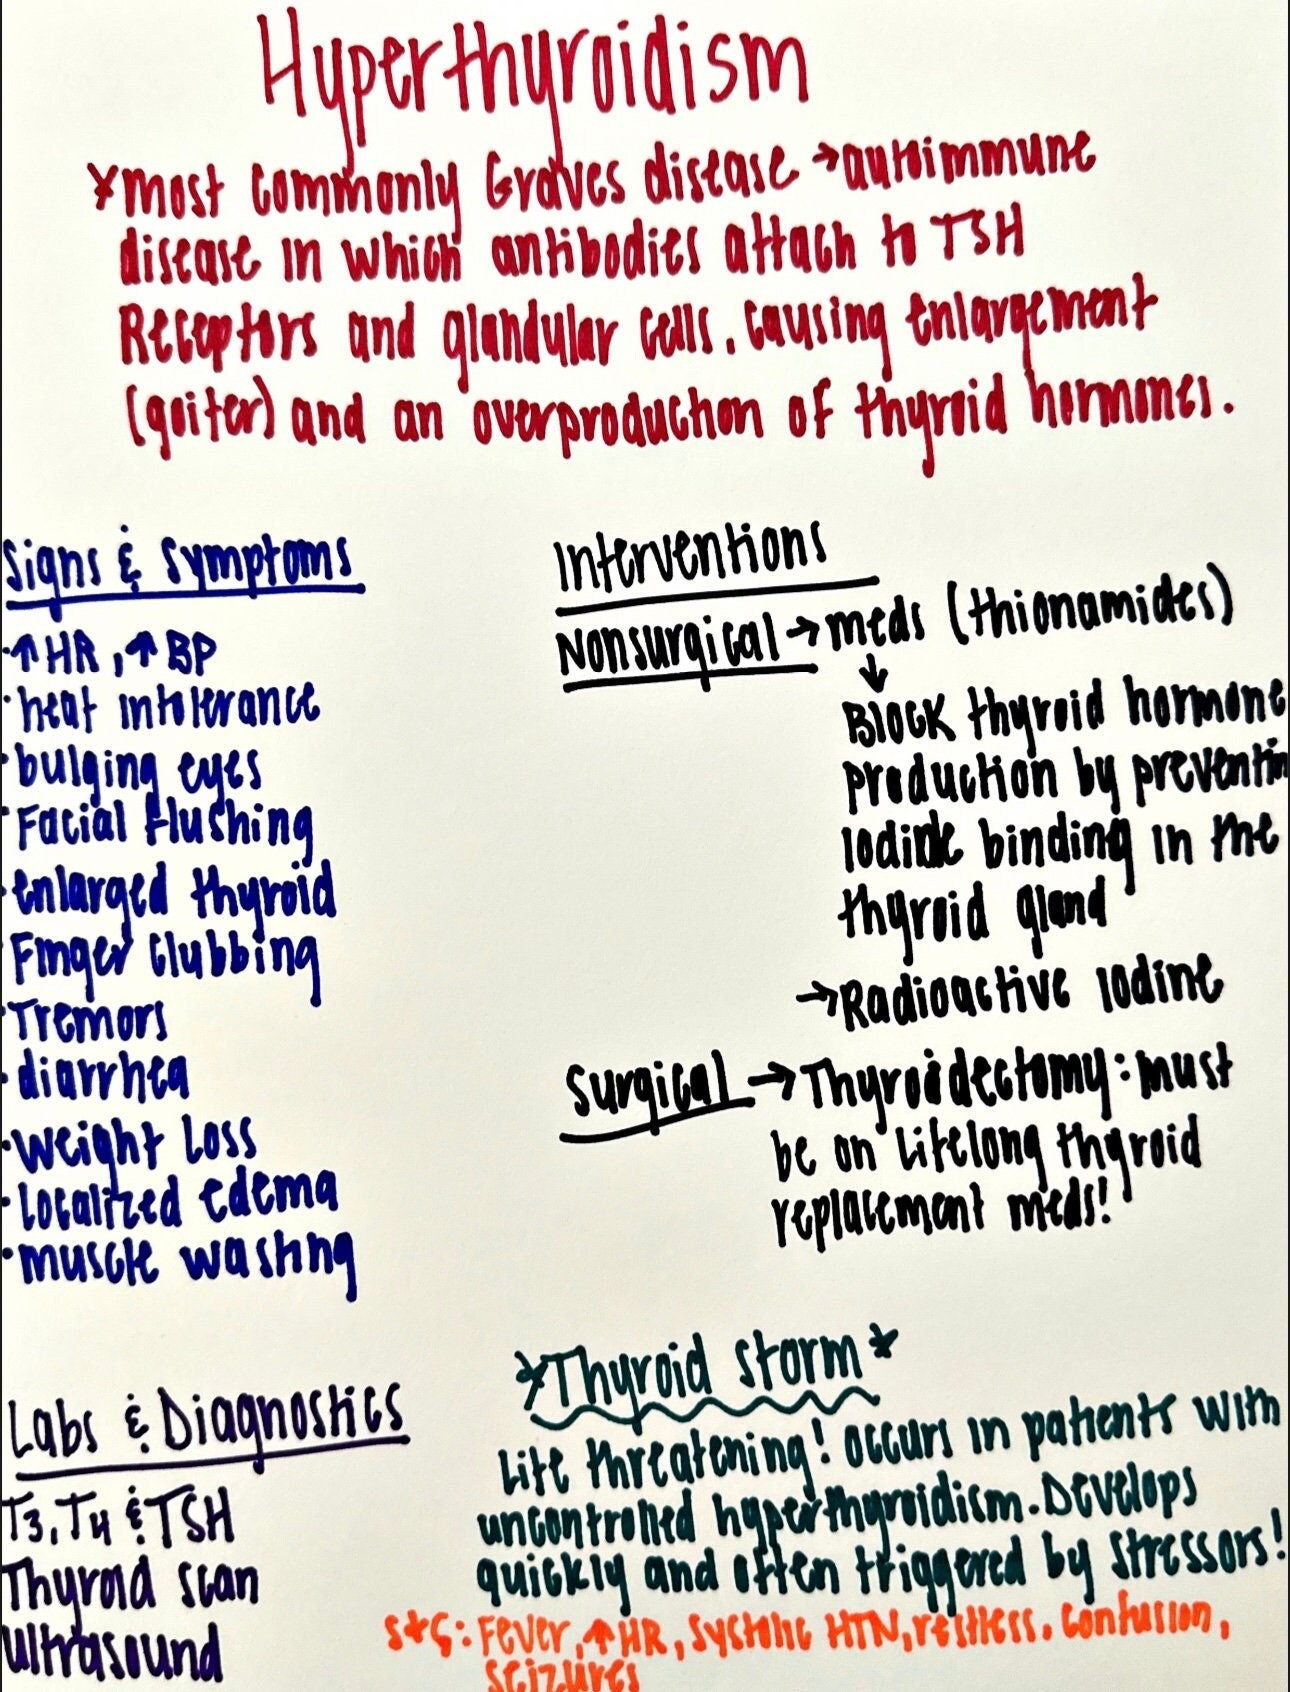 Hyperthyroidism
*most commonly Graves disease → autoimmune
disease in which antibodies attach to TSH
Receptors and glandular cells, causing enlargement
(goiter) and an overproduction of thyroid hormones.
Signs & Symptoms
· ↑ HR, ↑ BP
· heat intolerance
· bulging eyes
· Facial flushing
· enlarged thyroid
· Finger clubbing
· Tremors
· diarrhea
· weight loss
· localized edema
· muscle wasting
Interventions
Nonsurgical → meds (thionamides)
↓
Block thyroid hormone
production by preventin
Iodide binding in the
thyroid gland
→ Radioactive Iodine
Surgical → Thyroidectomy: must
be on lifelong thyroid
replacement meds!
Labs & Diagnostics
T3, T4 & TSH
Thyroid scan
ultrasound
*Thyroid storm*
Life threatening! occurs in patients with
uncontrolled hyperthyroidism. Develops
quickly and often triggered by stressors!
S+S: Fever, ↑ HR, systolic HTN, restless, confusion,
seizures